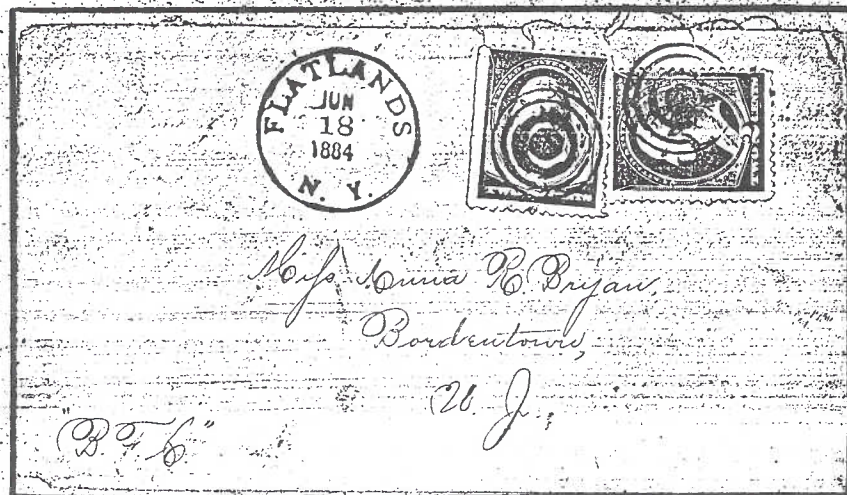 FLATLANDS
JUN
18
1884
N. Y.
Miss Anna R. Bryan,
Bordentown,
N. J.,